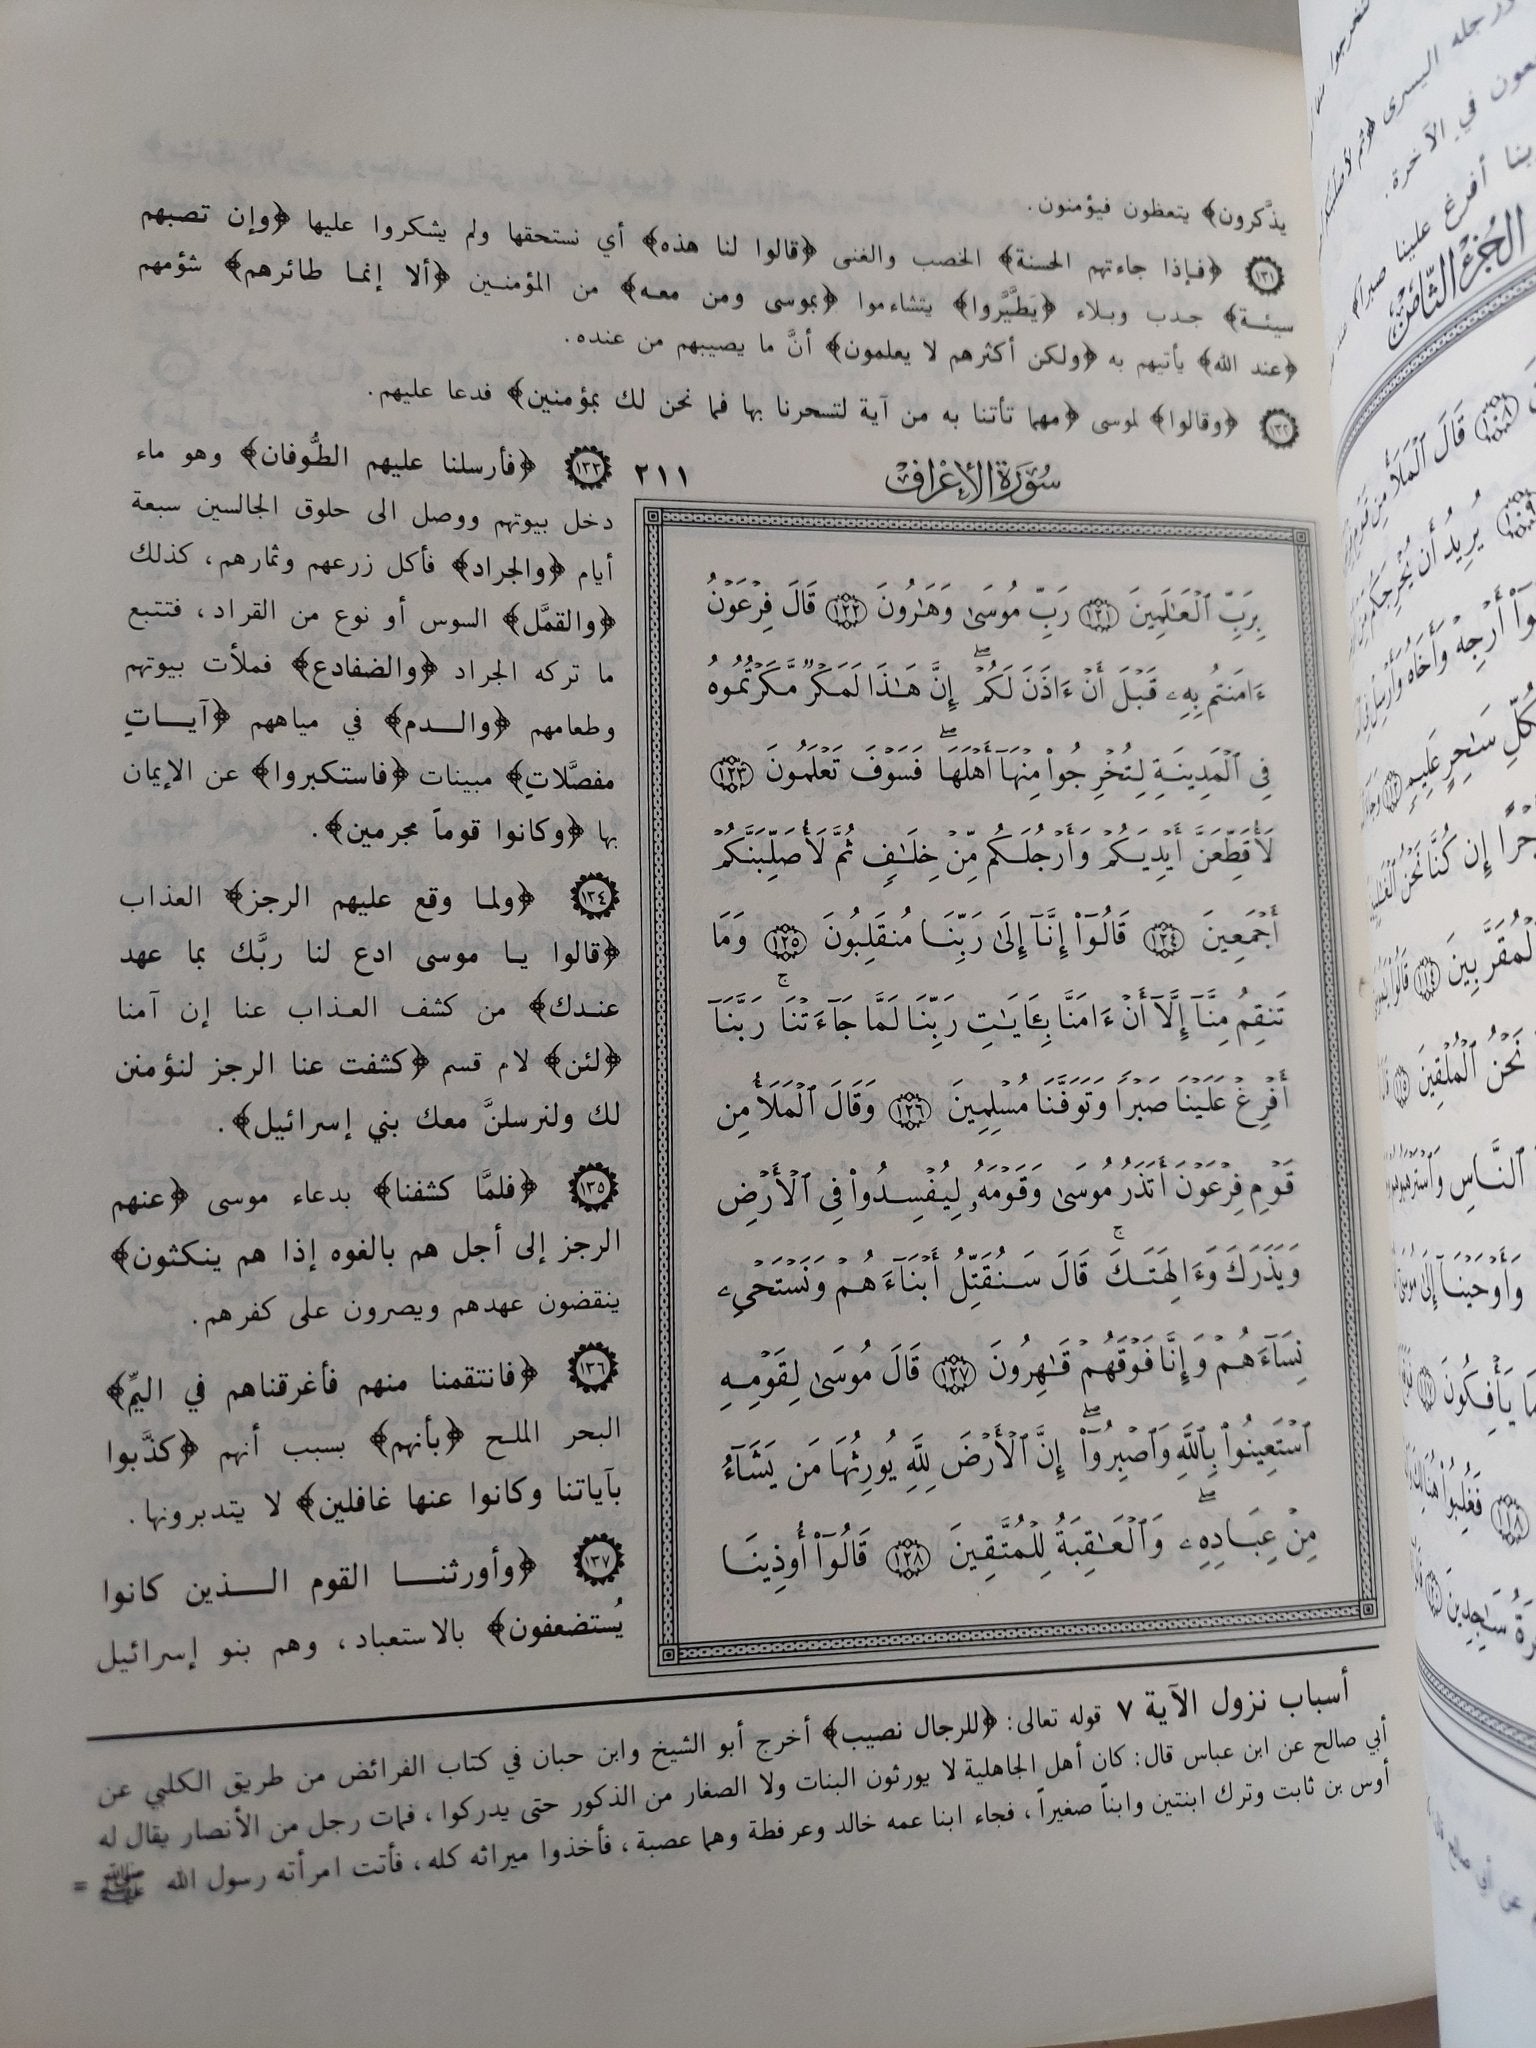 يذَّكرون﴾ يتعظون فيؤمنون.
١٣١ ﴿فإذا جاءتهم الحسنة﴾ الخصب والغنى ﴿قالوا لنا هذه﴾ أي نستحقها ولم يشكروا عليها ﴿وإن تصبهم
سيئة﴾ جدب وبلاء ﴿يَطَّيَّروا﴾ يتشاءموا ﴿بموسى ومن معه﴾ من المؤمنين ﴿ألا إنما طائرهم﴾ شؤمهم
﴿عند الله﴾ يأتيهم به ﴿ولكن أكثرهم لا يعلمون﴾ أنَّ ما يصيبهم من عنده.
١٣٢ ﴿وقالوا﴾ لموسى ﴿مهما تأتنا به من آية لتسحرنا بها فما نحن لك بمؤمنين﴾ فدعا عليهم.
سُورَةُ الأَعْرَافِ ٢١١
بِرَبِّ ٱلْعَٰلَمِينَ ١٢١ رَبِّ مُوسَىٰ وَهَٰرُونَ ١٢٢ قَالَ فِرْعَوْنُ
ءَامَنتُم بِهِۦ قَبْلَ أَنْ ءَاذَنَ لَكُمْ ۖ إِنَّ هَٰذَا لَمَكْرٌ مَّكَرْتُمُوهُ
فِى ٱلْمَدِينَةِ لِتُخْرِجُوا۟ مِنْهَآ أَهْلَهَا ۖ فَسَوْفَ تَعْلَمُونَ ١٢٣
لَأُقَطِّعَنَّ أَيْدِيَكُمْ وَأَرْجُلَكُم مِّنْ خِلَٰفٍ ثُمَّ لَأُصَلِّبَنَّكُمْ
أَجْمَعِينَ ١٢٤ قَالُوٓا۟ إِنَّآ إِلَىٰ رَبِّنَا مُنقَلِبُونَ ١٢٥ وَمَا
تَنقِمُ مِنَّآ إِلَّآ أَنْ ءَامَنَّا بِـَٔايَٰتِ رَبِّنَا لَمَّا جَآءَتْنَا ۚ رَبَّنَآ
أَفْرِغْ عَلَيْنَا صَبْرًا وَتَوَفَّنَا مُسْلِمِينَ ١٢٦ وَقَالَ ٱلْمَلَأُ مِن
قَوْمِ فِرْعَوْنَ أَتَذَرُ مُوسَىٰ وَقَوْمَهُۥ لِيُفْسِدُوا۟ فِى ٱلْأَرْضِ
وَيَذَرَكَ وَءَالِهَتَكَ ۚ قَالَ سَنُقَتِّلُ أَبْنَآءَهُمْ وَنَسْتَحْىِۦ
نِسَآءَهُمْ وَإِنَّا فَوْقَهُمْ قَٰهِرُونَ ١٢٧ قَالَ مُوسَىٰ لِقَوْمِهِ
ٱسْتَعِينُوا۟ بِٱللَّهِ وَٱصْبِرُوٓا۟ ۖ إِنَّ ٱلْأَرْضَ لِلَّهِ يُورِثُهَا مَن يَشَآءُ
مِنْ عِبَادِهِۦ ۖ وَٱلْعَٰقِبَةُ لِلْمُتَّقِينَ ١٢٨ قَالُوٓا۟ أُوذِينَا
١٣٣ ﴿فأرسلنا عليهم الطُّوفان﴾ وهو ماء
دخل بيوتهم ووصل الى حلوق الجالسين سبعة
أيام ﴿والجراد﴾ فأكل زرعهم وثمارهم، كذلك
﴿والقمَّل﴾ السوس أو نوع من القراد، فتتبع
ما تركه الجراد ﴿والضفادع﴾ فملأت بيوتهم
وطعامهم ﴿والدم﴾ في مياههم ﴿آياتٍ
مفصَّلاتٍ﴾ مبينات ﴿فاستكبروا﴾ عن الإيمان
بها ﴿وكانوا قوماً مجرمين﴾.
١٣٤ ﴿ولما وقع عليهم الرجز﴾ العذاب
﴿قالوا يا موسى ادع لنا ربَّك بما عهد
عندك﴾ من كشف العذاب عنا إن آمنا
﴿لئن﴾ لام قسم ﴿كشفت عنا الرجز لنؤمنن
لك ولنرسلنَّ معك بني إسرائيل﴾.
١٣٥ ﴿فلمَّا كشفنا﴾ بدعاء موسى ﴿عنهم
الرجز إلى أجل هم بالغوه إذا هم ينكثون﴾
ينقضون عهدهم ويصرون على كفرهم.
١٣٦ ﴿فانتقمنا منهم فأغرقناهم في اليمِّ﴾
البحر الملح ﴿بأنهم﴾ بسبب أنهم ﴿كذَّبوا
بآياتنا وكانوا عنها غافلين﴾ لا يتدبرونها.
١٣٧ ﴿وأورثنا القوم الذين كانوا
يُستضعفون﴾ بالاستعباد، وهم بنو إسرائيل
أسباب نزول الآية ٧ قوله تعالى: ﴿للرجال نصيب﴾ أخرج أبو الشيخ وابن حبان في كتاب الفرائض من طريق الكلبي عن
أبي صالح عن ابن عباس قال: كان أهل الجاهلية لا يورثون البنات ولا الصغار من الذكور حتى يدركوا، فمات رجل من الأنصار يقال له
أوس بن ثابت وترك ابنتين وابناً صغيراً، فجاء ابنا عمه خالد وعرفطة وهما عصبة، فأخذوا ميراثه كله، فأتت امرأته رسول الله ﷺ =
الجُزءُ الثَّامِن
قَالَ ٱلْمَلَأُ مِن قَوْمِ
يُرِيدُ أَن يُخْرِجَكُم